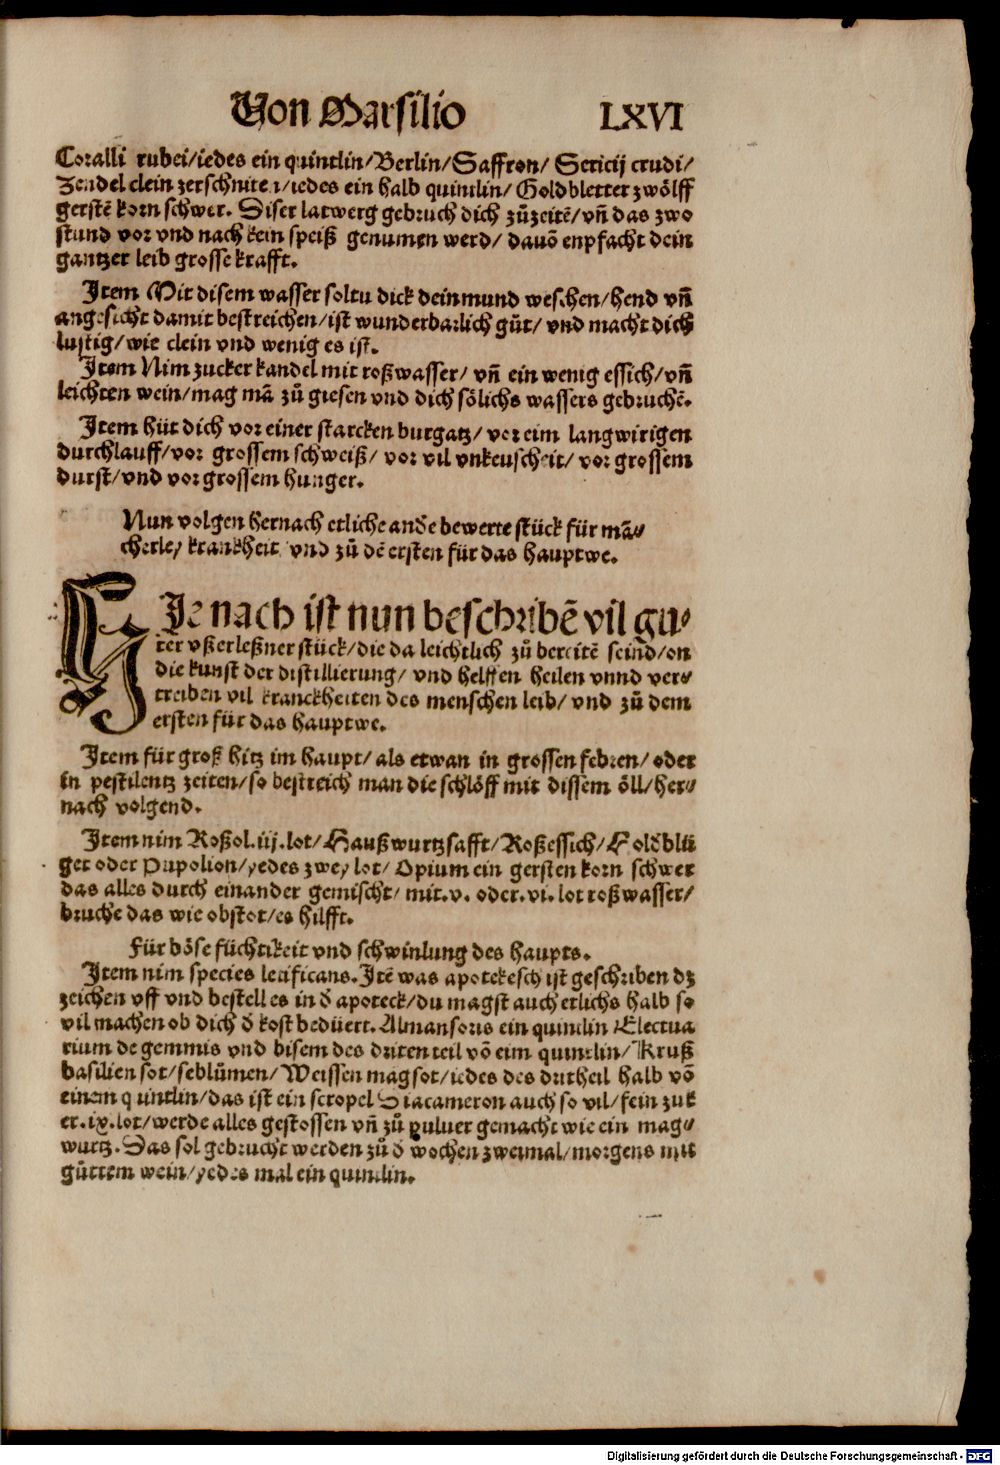 Von Marsilio LXVI
Coralli rubei/iedes ein quintlin/Berlin/Saffron/ Sericij crudi/
Zendel clein zerschnitten/iedes ein halb quintlin/ Goldbletter zwölff
gerstē korn schwer. Diser latwerg gebruch dich zůzeitē/vn̄ das zwo
stund vor vnd nach kein speiß genumen werd/ dauō enpfacht dein
gantzer leib grosse krafft.
Item Mit disem wasser soltu dick dein mund weschen/hend vn̄
angesicht damit bestreichen/ist wunderbarlich gůt/ vnd macht dich
lustig/wie clein vnd wenig es ist.
Item Nim zucker kandel mit roßwasser/ vn̄ ein wenig essich/vn̄
leichten wein/mag mā zů giesen vnd dich sölichs wassers gebruchē.
Item hüt dich vor einer starcken purgatz/ vor eim langwirigen
durchlauff/vor grossem schweiß/ vor vil vnkeuscheit/ vor grossem
durst/vnd vor grossem hunger.
Nun volgen hernach etliche and̄e bewerte stück für mā⸗
cherley kranckheit vnd zů dē ersten für das hauptwe.
HIe nach ist nun beschribē vil gu⸗
ter vßerleßner stück/die da leichtlich zů bereitē seind/on
die kunst der distillierung/ vnd helffen heilen vnnd ver⸗
treiben vil kranckheiten des menschen leib/ vnd zů dem
ersten für das hauptwe.
Item für groß hitz im haupt/ als etwan in grossen febren/ oder
in pestilentz zeiten/so bestreich man die schlöff mit dissem öll/her⸗
nach volgend.
Item nim Roßol.iij.lot/Haußwurtzsafft/Roßessich/
get oder Pupolion/yedes zwey lot/ Opium ein gersten korn schwer
das alles durch einander gemischt/ mit.v. oder.vi.lot roßwasser/
bruche das wie obstot/es hilfft.
Für böse füchtikeit vnd schwinlung des haupts.
Item nim species letificans.Itē was apotekesch ist geschriben dz
zeichen vff vnd bestell es in d̄ apoteck/du magst auch etlichs halb so
vil machen ob dich d̄ kost bedüert. Almansoris ein quintlin Electua
rium de gemmis vnd bisem des dritenteil vō eim quintlin/ Kruß
basilien sot/seblůmen/Weissen magsot/iedes des dritheil halb vō
einem quintlin/das ist ein scropel Diacameron auch so vil/fein zuk
er.ix.lot/werde alles gestossen vn̄ zů puluer gemacht wie ein mag⸗
wurtz. Das sol gebrucht werden zů d̄ wochen zweimal/morgens mit
gůttem wein/yedes mal ein quintlin.
Digitalisierung gefördert durch die Deutsche Forschungsgemeinschaft - DFG